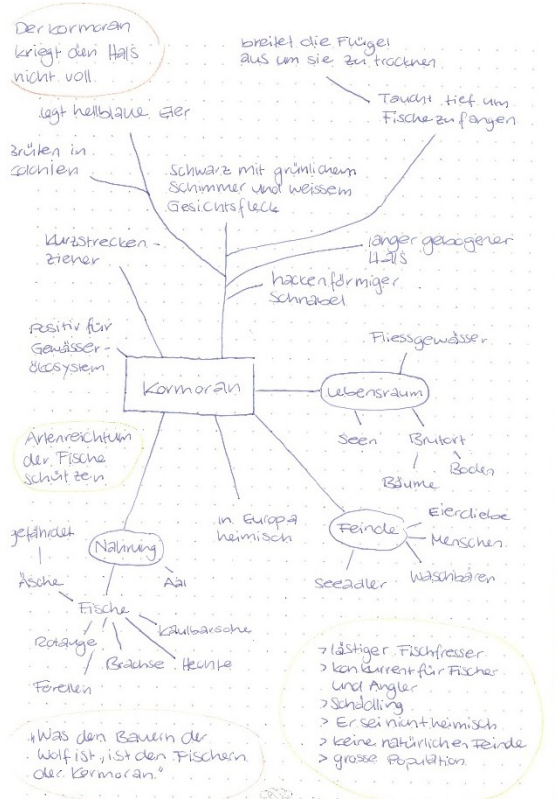 Der Kormoran
kriegt den Hals
nicht voll.
breitet die Flügel
aus um sie zu trocknen
Taucht tief um
Fische zu fangen
legt hellblaue Eier
Brüten in
Colonien
schwarz mit grünlichem
Schimmer und weissem
Gesichtsfleck
Kurzstrecken-
zieher
langer gebogener
Hals
hackenförmiger
Schnabel
Positiv für
Gewässer-
ökosystem
Kormoran
Fliessgewässer
Lebensraum
Seen
Brutort
Boden
Bäume
Artenreichtum
der Fische
schützen
in Europa
heimisch
Feinde
Eierdiebe
Menschen
Waschbären
Seeadler
gefährdet
Nahrung
Äsche
Aal
Fische
Kaulbarsche
Rotauge
Brachse
Hechte
Forellen
> lästiger Fischfresser
> Konkurrent für Fischer
und Angler
> Schädling
> Er sei nicht heimisch
> keine natürlichen Feinde
> grosse Population
"Was den Bauern der
Wolf ist, ist den Fischern
der Kormoran."